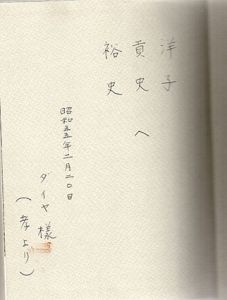 洋子
貢史へ
裕史
昭和五五年二月二〇日
ダイヤ様
(孝より)